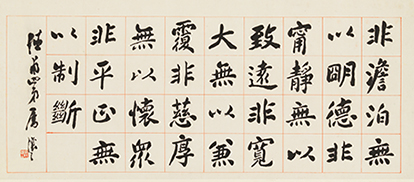 非澹泊無
以明德非
甯靜無以
致遠非寬
大無以兼
覆非慈厚
無以懷眾
非平正無
以制斷
弟屬